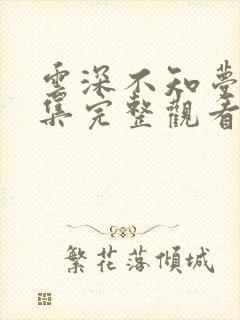 雲深不知夢
集完整觀看
繁花落傾城